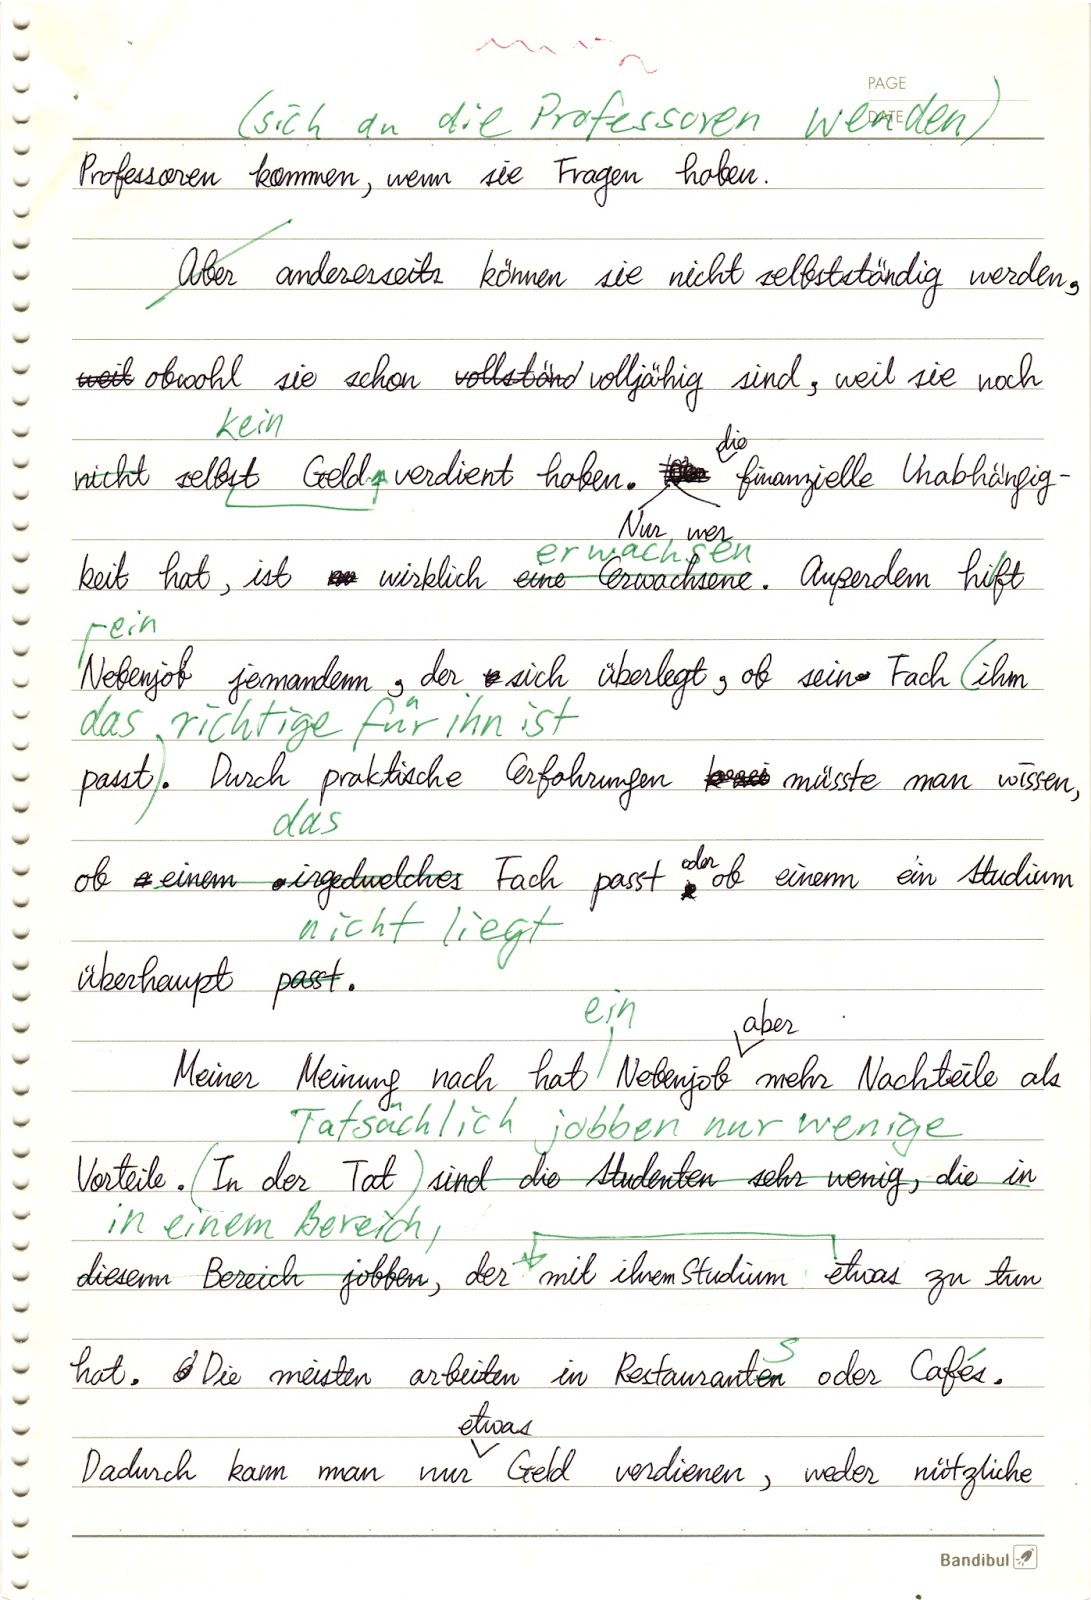 PAGE
DATE
(sich an die Professoren wenden)
Professoren kommen, wenn sie Fragen haben.
Aber andererseits können sie nicht selbstständig werden,
weil obwohl sie schon vollständ volljährig sind, weil sie noch
kein
die
nicht selbst Geld verdient haben. finanzielle Unabhängig-
Nur wer
erwachsen
keit hat, ist wirklich eine Erwachsene. Außerdem hilft
ein
Nebenjob jemandem, der sich überlegt, ob sein Fach (ihm
das richtige für ihn ist
passt). Durch praktische Erfahrungen müsste man wissen,
das
oder
ob einem irgedwelches Fach passt ob einem ein Studium
nicht liegt
überhaupt passt.
ein
aber
Meiner Meinung nach hat Nebenjob mehr Nachteile als
Tatsächlich jobben nur wenige
Vorteile. (In der Tat) sind die Studenten sehr wenig, die in
in einem Bereich,
diesem Bereich jobben, der mit ihrem Studium etwas zu tun
s
hat. Die meisten arbeiten in Restauranten oder Cafés.
etwas
Dadurch kann man nur Geld verdienen, weder nützliche
Bandibul